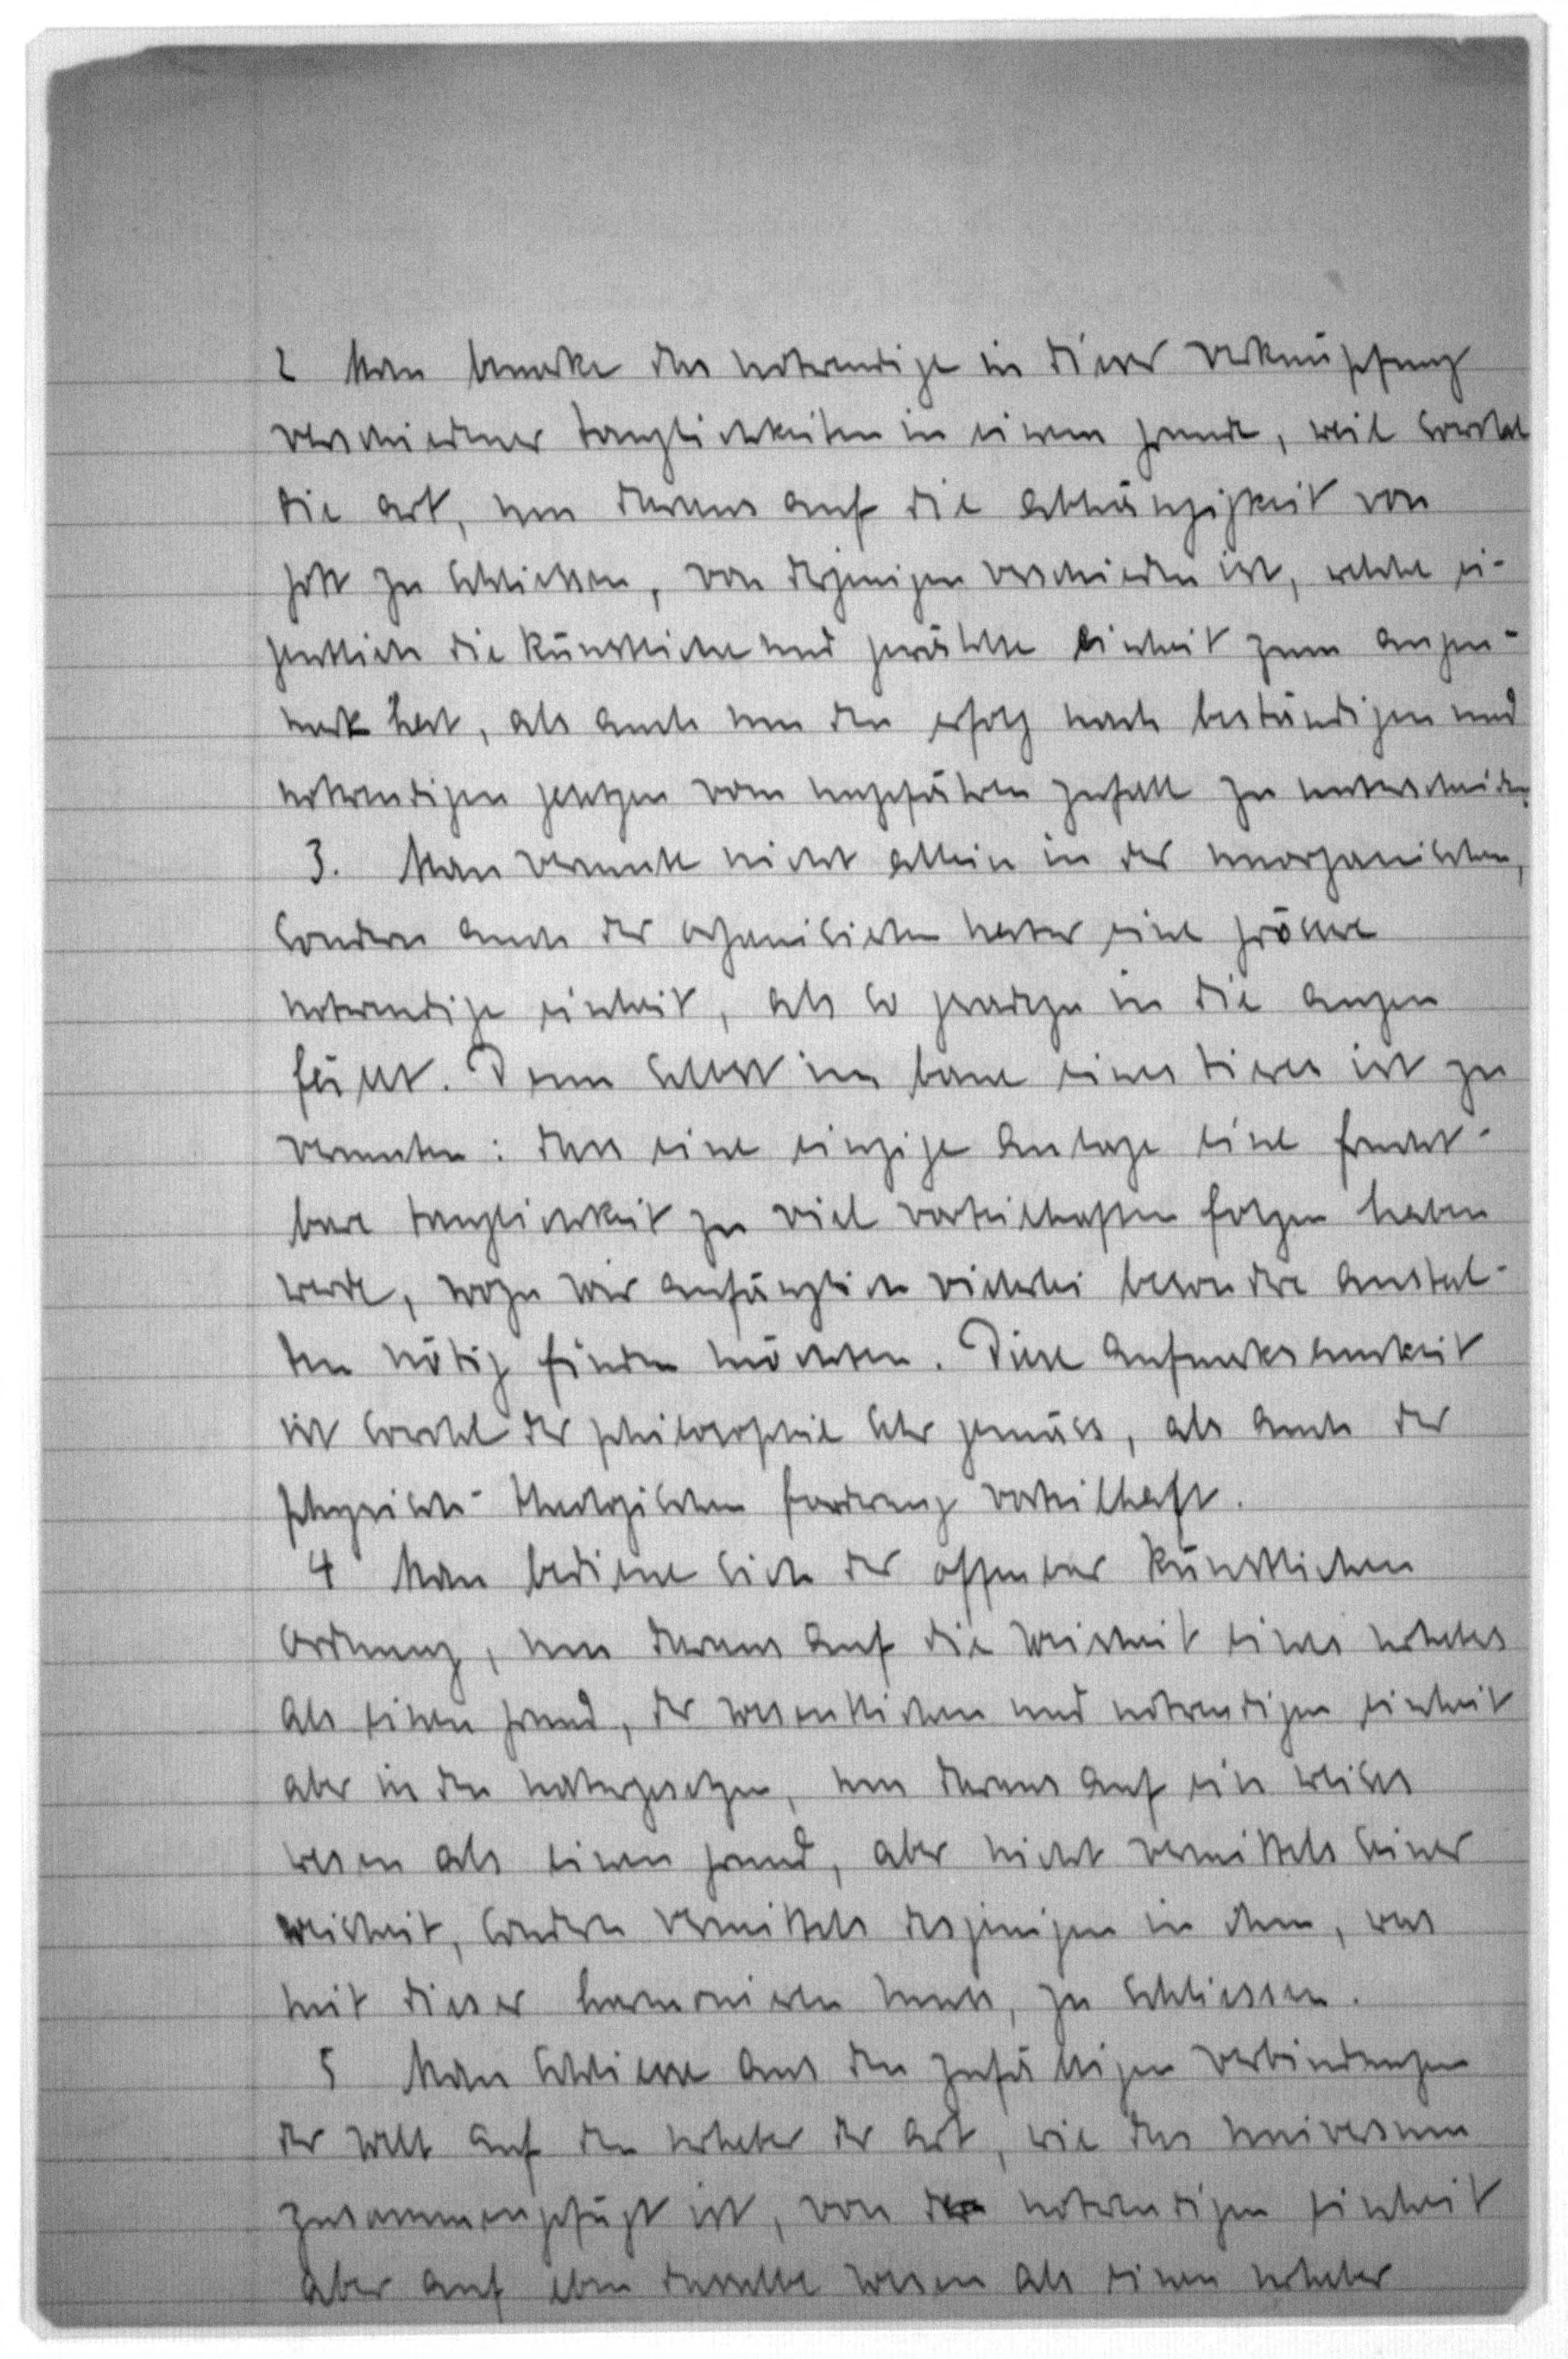 2 Man bemerke das notwendige in dieser verknüpfung
verschiedener tauglichkeiten in einem grunde, weil sowohl
die art, um daraus auf die abhängigkeit von
gott zu schliessen, von derjenigen verschieden ist, welche ei-
gentlich die künstliche und gewählte einheit zum augen-
merk hat, als auch um den erfolg nach beständigen und
notwendigen gesetzen vom ungefähren zufall zu unterscheiden.
3. Man vermute nicht allein in der unorganischen,
sondern auch der organisierten natur eine grössere
notwendige einheit, als so geradezu in die augen
fällt. Denn selbst im baue eines tieres ist zu
vermuten: dass eine einzige anlage eine frucht-
bare tauglichkeit zu viel vorteilhaften folgen haben
werde, wozu wir anfänglich vielerlei besondere anstal-
ten nötig finden möchten. Diese aufmerksamkeit
ist sowohl der philosophie sehr gemäss, als auch der
physisch-theologischen forderung vorteilhaft.
4 Man bediene sich der offenbar künstlichen
ordnung, um daraus auf die weisheit eines urhebers
als einen grund, der wesentlichen und notwendigen einheit
aber in den naturgesetzen, um daraus auf ein weises
wesen als einen grund, aber nicht vermittels seiner
weisheit, sondern vermittels desjenigen in ihm, was
mit dieser harmonieren muss, zu schliessen.
5 Man schliesse aus den zufälligen verbindungen
der welt auf den urheber der art, wie das universum
zusammengefügt ist, von der notwendigen einheit
aber auf eben dasselbe wesen als einen urheber